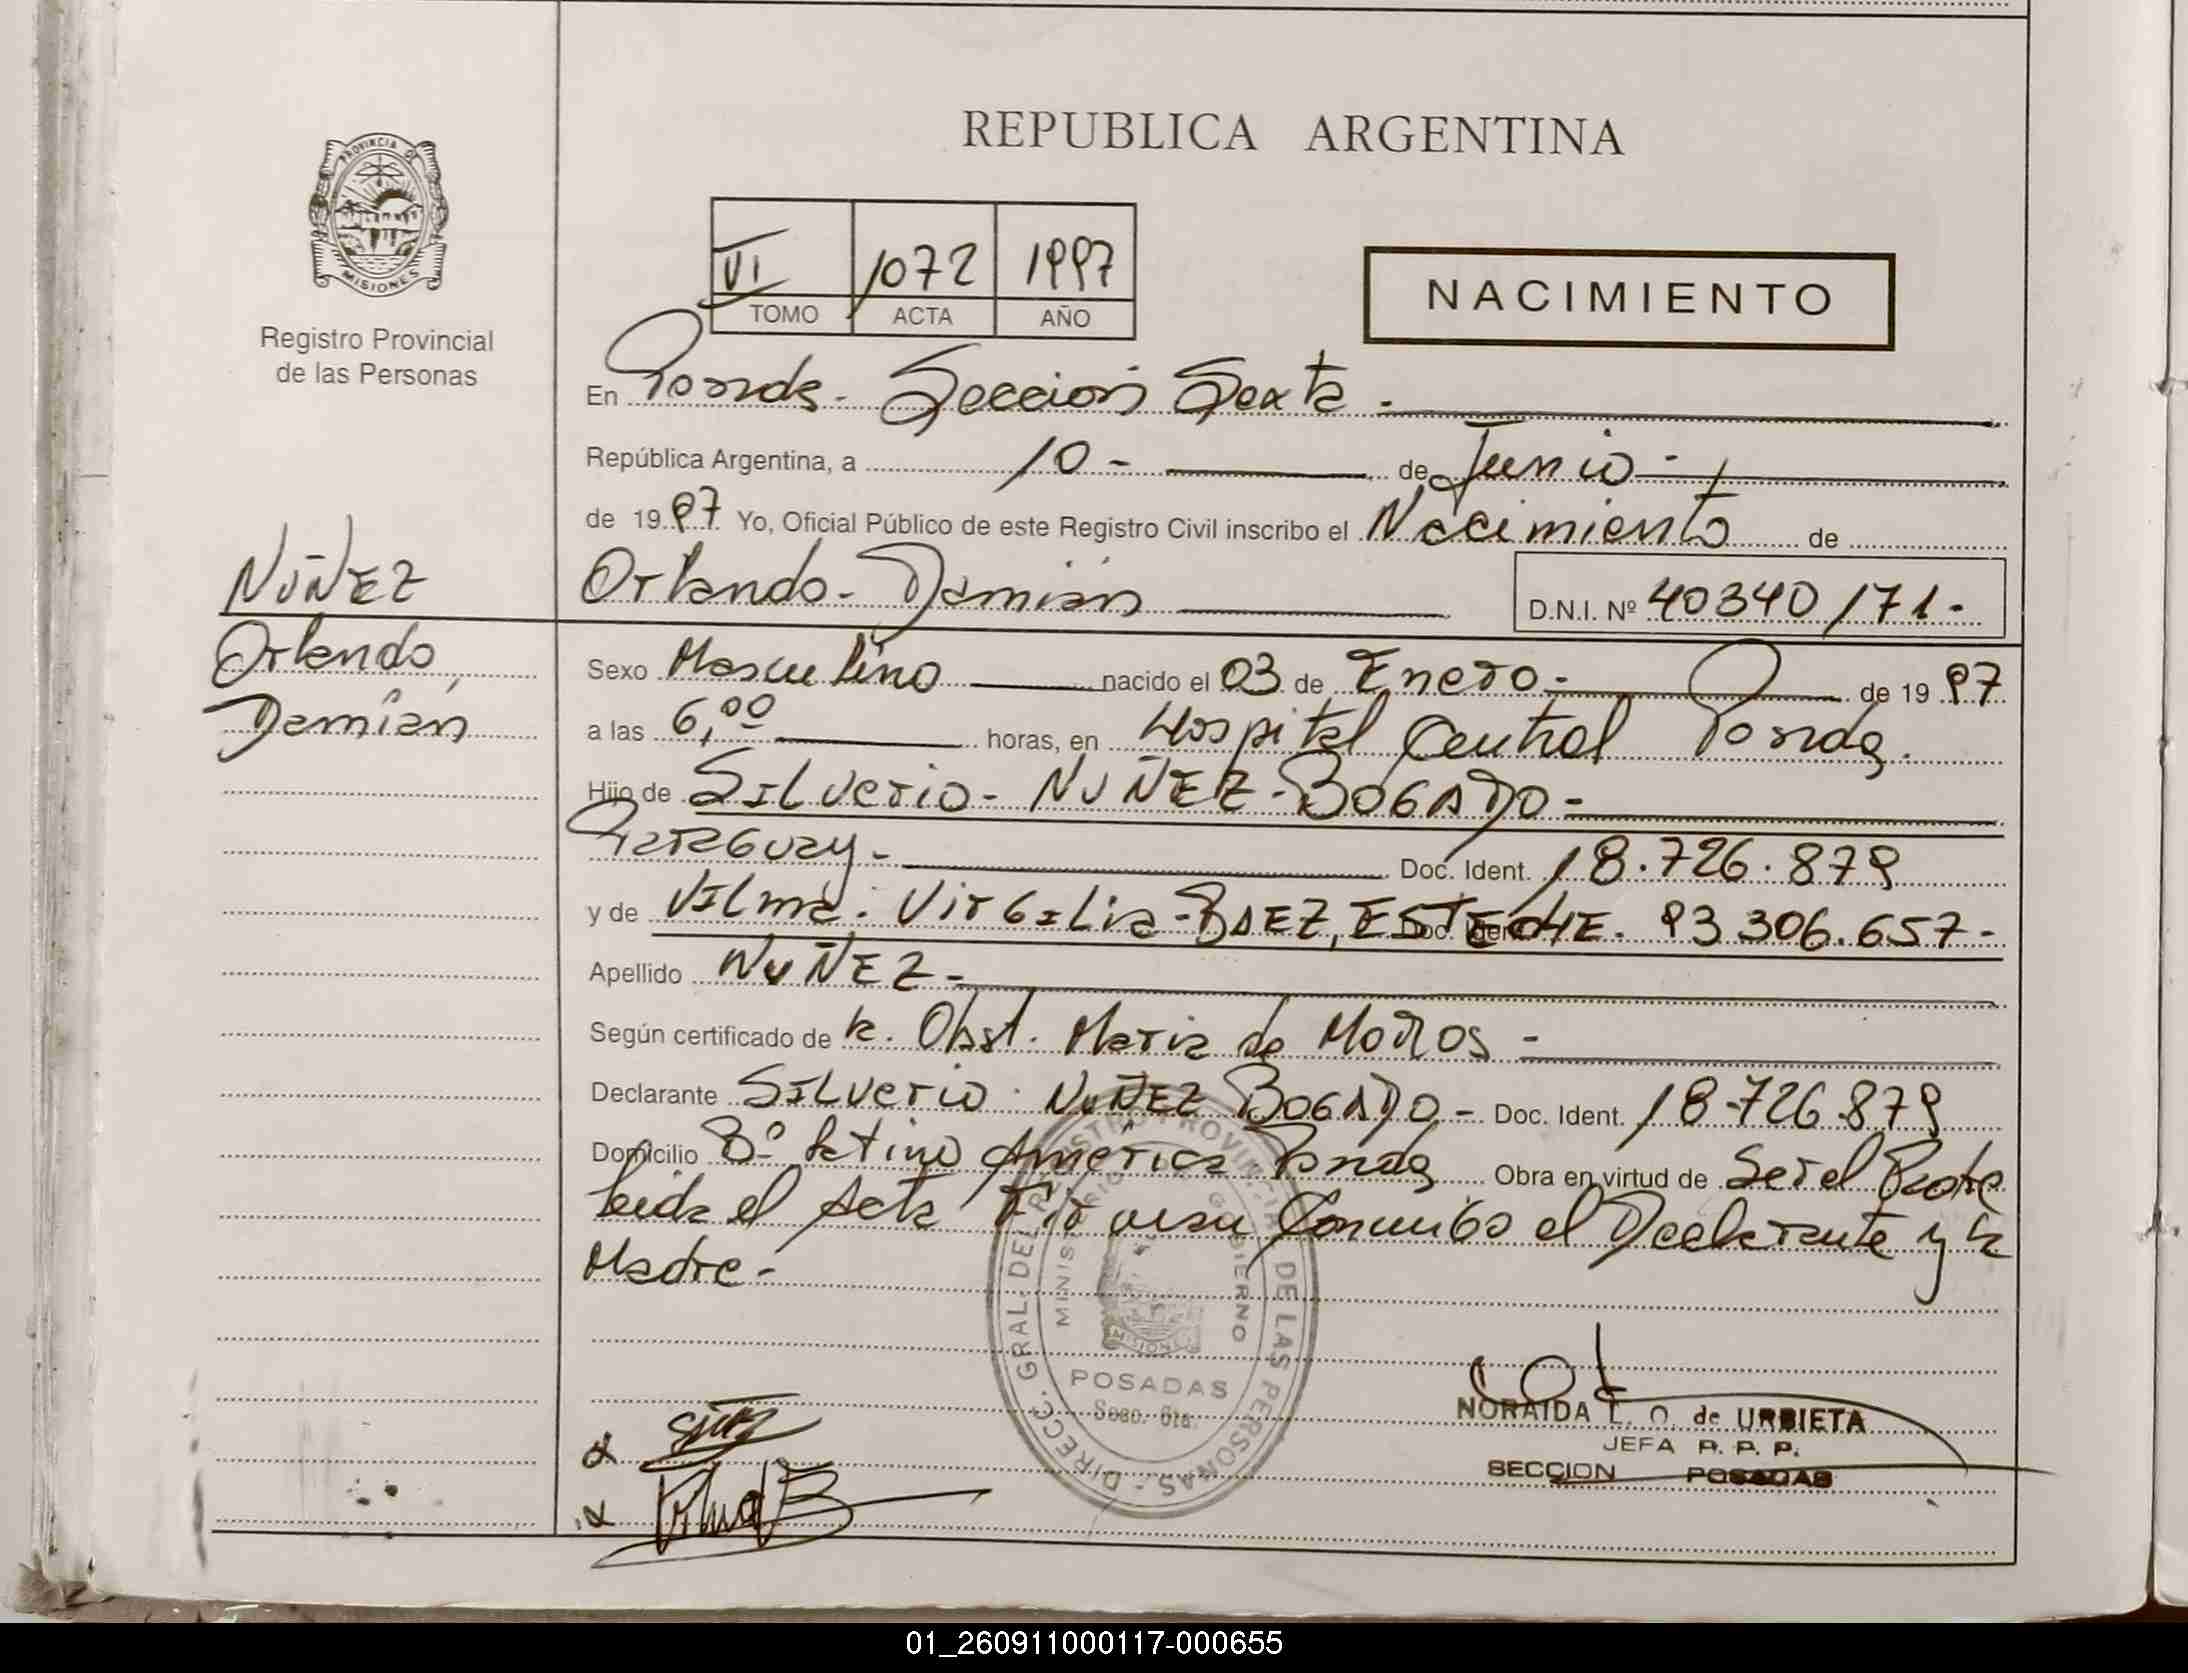 REPUBLICA ARGENTINA
PROVINCIA DE
MISIONES
Registro Provincial
de las Personas
VI 1072 1997
TOMO ACTA AÑO
NACIMIENTO
En Posadas - Seccion Sexta -
República Argentina, a 10 - de Junio -
de 1997 Yo, Oficial Público de este Registro Civil inscribo el Nacimiento de
Orlando - Damián D.N.I. Nº 40340171 -
NUÑEZ
Orlando,
Damián
Sexo Masculino nacido el 03 de Enero - de 1997
a las 6,00 horas, en Hospital Central Posadas.
Hijo de SILverio - NUÑEZ - BOGADO -
Paraguay - Doc. Ident. 18.726.879
y de VILma - VirgILia - BAEZ, ESTECHE. Doc. Ident. 93 306.657 -
Apellido NUÑEZ -
Según certificado de la Obst. Maria de
Declarante SILverio NUÑEZ BOGADO - Doc. Ident. 18.726.879
Domicilio Bº Latino América Posadas Obra en virtud de Ser el Padre
Leida el Acta Firman Conmigo el Declarante y la
Madre -
DIRECC. GRAL. DEL REGISTRO PROVINCIAL DE LAS PERSONAS.-
MINISTERIO GOBIERNO
MISIONES
POSADAS
Secc. 6ta.
NORAIDA L. O. de URBIETA
JEFA R. P. P.
SECCION POSADAS
01_260911000117-000655